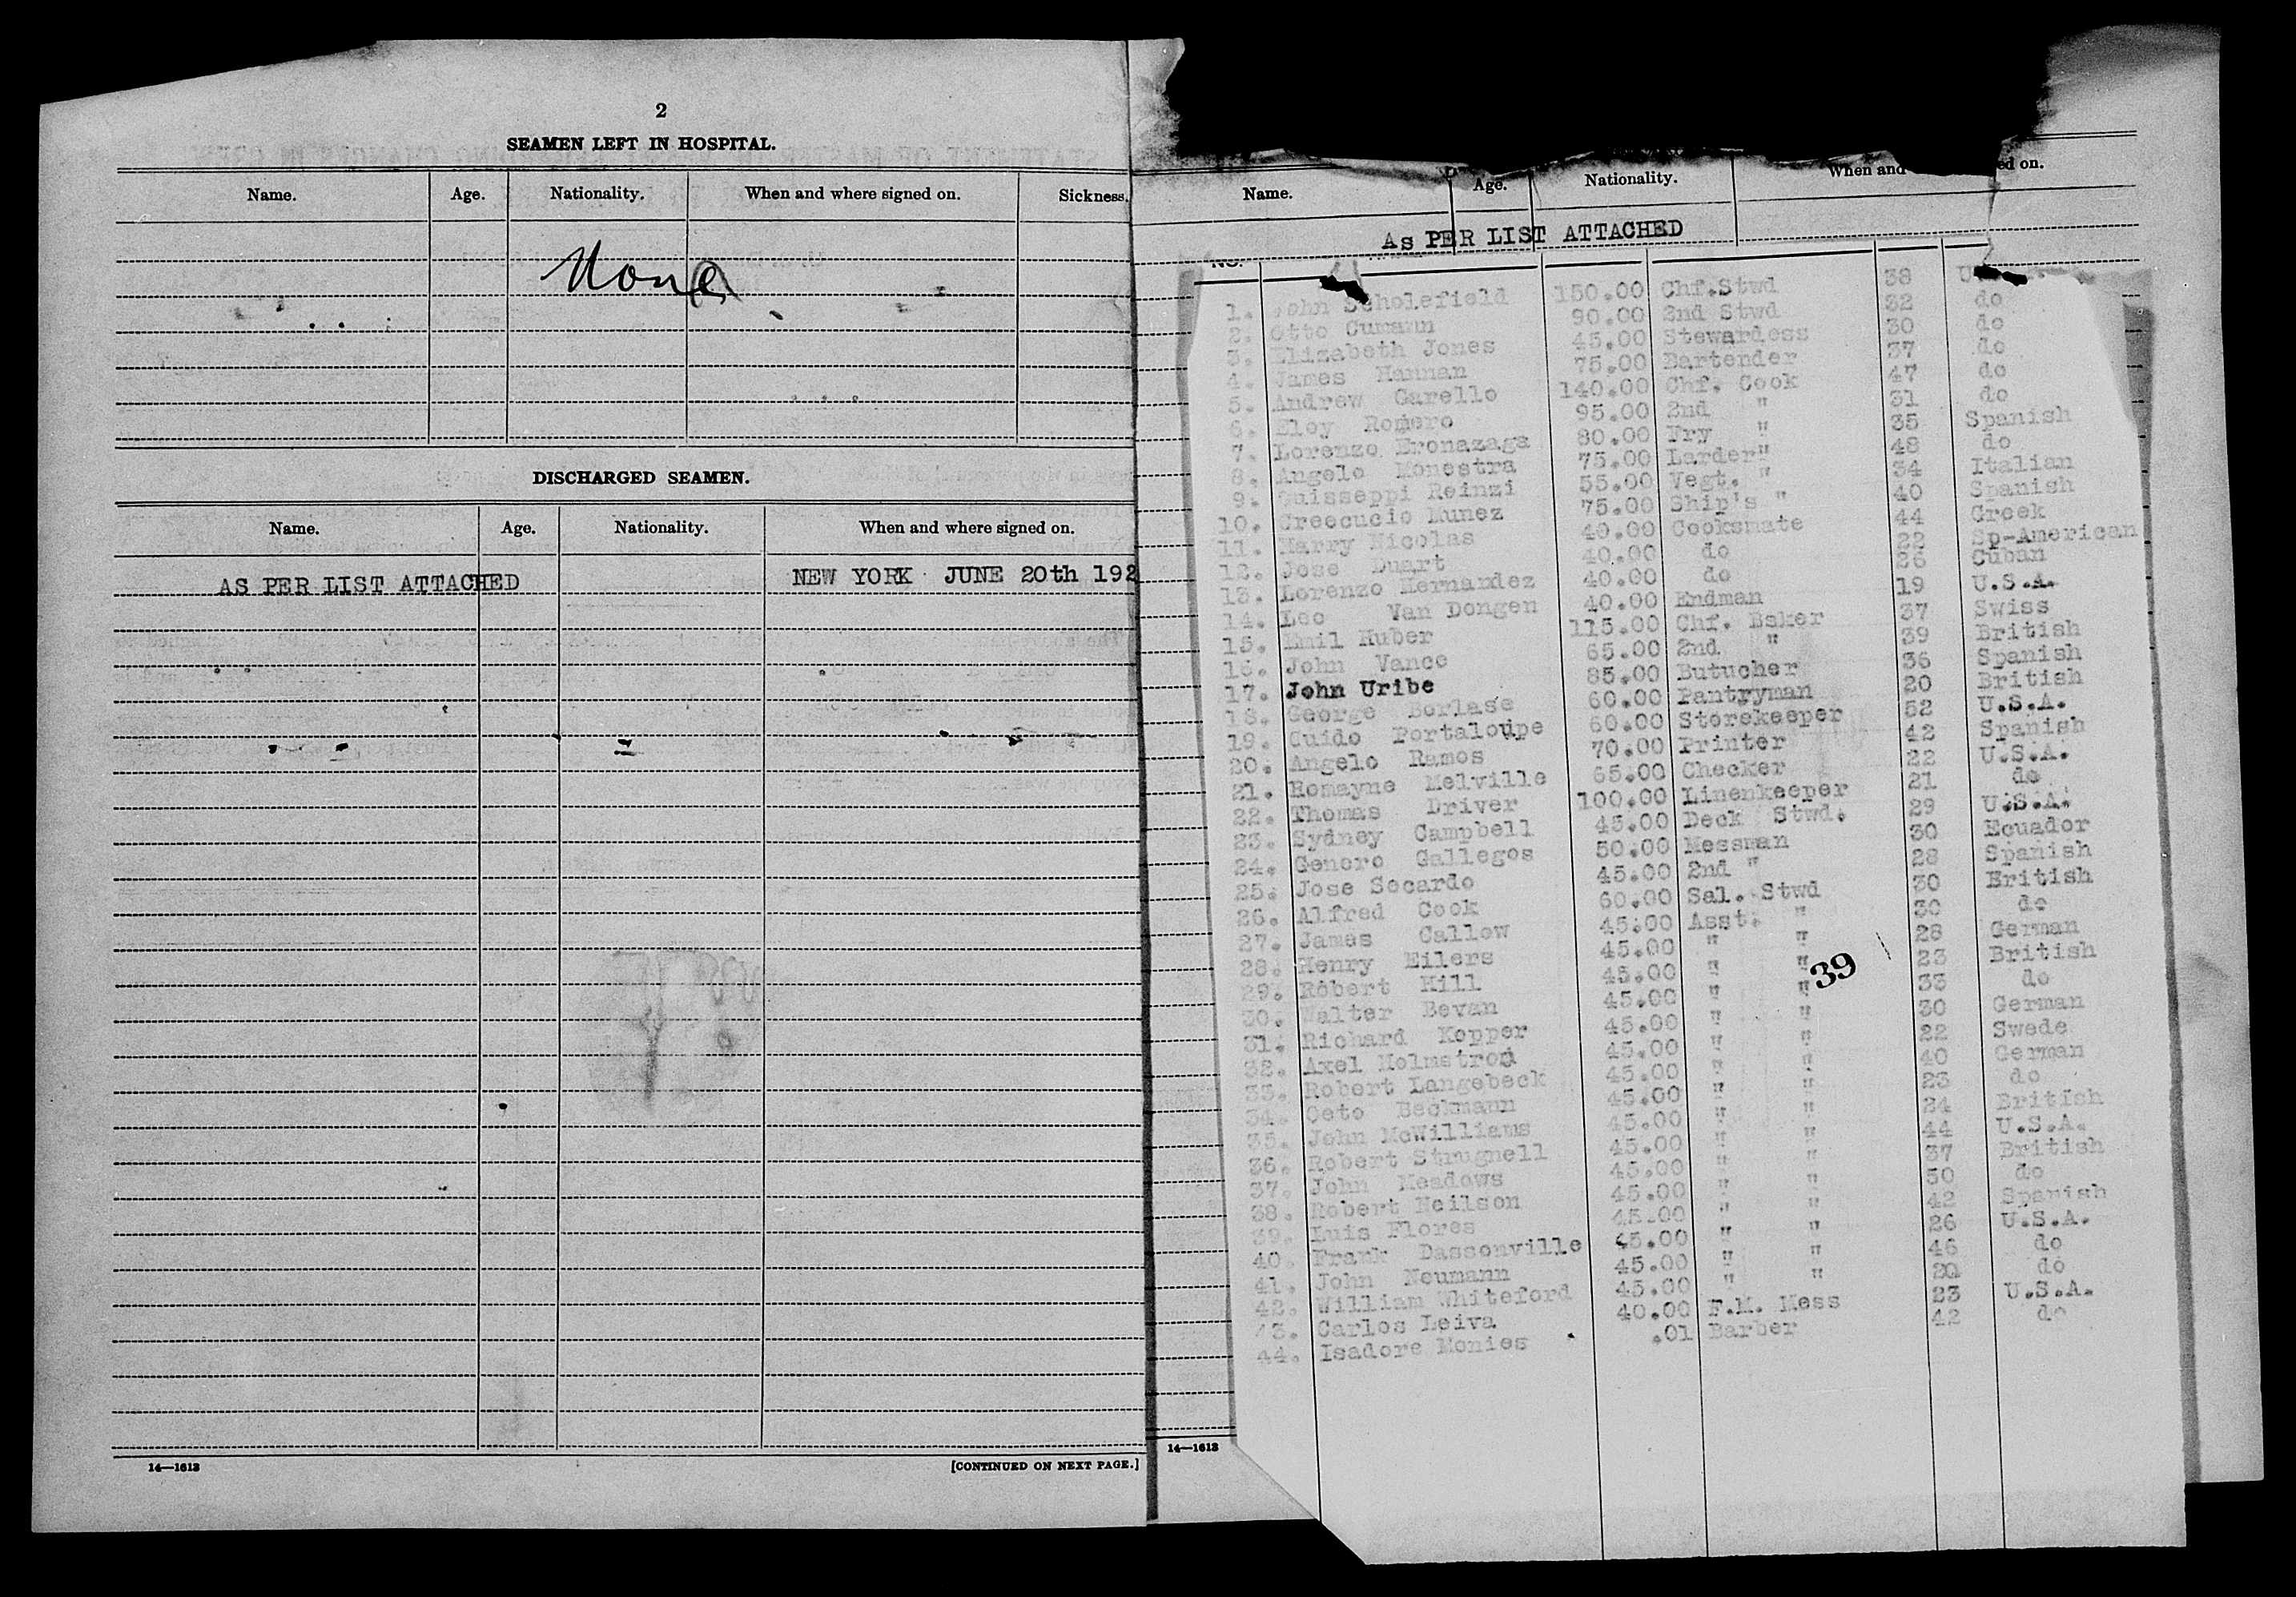 2
SEAMEN LEFT IN HOSPITAL.
Name. Age. Nationality. When and where signed on. Sickness.
None
DISCHARGED SEAMEN.
Name. Age. Nationality. When and where signed on.
AS PER LIST ATTACHED NEW YORK JUNE 20th 192
14—1613 [CONTINUED ON NEXT PAGE.]
Name. Age. Nationality. When and ed on.
As PER LIST ATTACHED
NO.
1. John Scholefield 150.00 Chf.Stwd 38
2. Otto Cumann 90.00 2nd Stwd 32 do
3. Elizabeth Jones 45.00 Stewardess 30 do
4. James Hannan 75.00 Bartender 37 do
5. Andrew Garello 140.00 Chf. Cook 47 do
6. Eloy Romero 95.00 2nd " 31 do
7. Lorenzo Eronazaga 80.00 Fry " 35 Spanish
8. Angelo Monestra 75.00 Larder" 48 do
9. Guisseppi Reinzi 55.00 Vegt. " 34 Italian
10. Creecucio Munez 75.00 Ship's " 40 Spanish
11. Harry Nicolas 40.00 Cooksmate 44 Greek
12. Jose Duart 40.00 do 22 Sp-American
13. Lorenzo Hernandez 40.00 do 26 Cuban
14. Leo Van Dongen 40.00 Endman 19 U.S.A.
15. Emil Huber 115.00 Chf. Baker 37 Swiss
16. John Vance 65.00 2nd " 39 British
17. John Uribe 85.00 Butucher 36 Spanish
18. George Borlase 60.00 Pantryman 20 British
19. Guido Portaloupe 60.00 Storekeeper 52 U.S.A.
20. Angelo Ramos 70.00 Printer 42 Spanish
21. Romayne Melville 65.00 Checker 22 U.S.A.
22. Thomas Driver 100.00 Linenkeeper 21 do
23. Sydney Campbell 45.00 Deck Stwd. 29 U.S.A.
24. Genero Gallegos 50.00 Messman 30 Ecuador
25. Jose Socardo 45.00 2nd " 28 Spanish
26. Alfred Cook 60.00 Sal. Stwd 30 British
27. James Callow 45.00 Asst. " 30 do
28. Henry Eilers 45.00 " " 28 German
29. Robert Hill 45.00 " " 39 23 British
30. Walter Bevan 45.00 " " 33 do
31. Richard Kopper 45.00 " " 30 German
32. Axel Holmstrom 45.00 " " 22 Swede
33. Robert Langebeck 45.00 " " 40 German
34. Oeto Beckmann 45.00 " " 23 do
35. John McWilliams 45.00 " " 24 British
36. Robert Strugnell 45.00 " " 44 U.S.A.
37. John Meadows 45.00 " " 37 British
38. Robert Neilson 45.00 " " 50 do
39. Luis Flores 45.00 " " 42 Spanish
40. Frank Dassonville 45.00 " " 26 U.S.A.
41. John Neumann 45.00 " " 46 do
42. William Whiteford 45.00 " " 20 do
43. Carlos Leiva 40.00 F.M. Mess 23 U.S.A.
44. Isadore Monies .01 Barber 42 do
14—1613